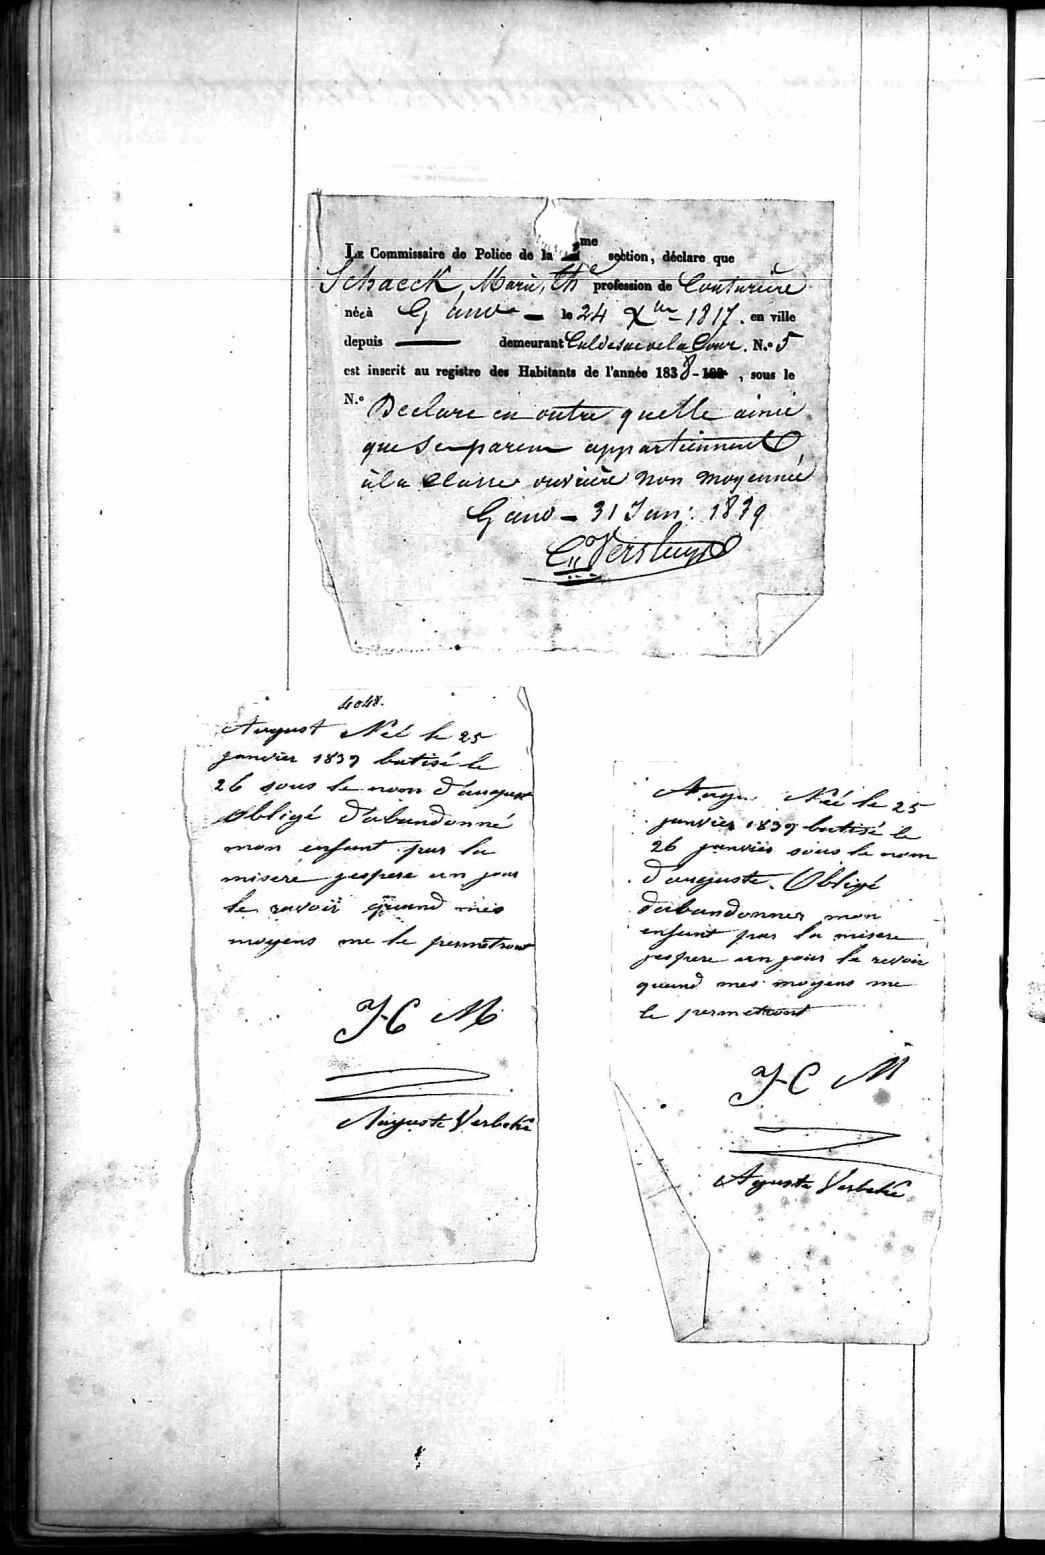 LE Commissaire de Police de la me section, déclare que
Schaeck, Marie, Th. profession de Couturière
née à Gand — le 24 Xbre 1817. en ville
depuis — demeurant Culdesac de la Cour. N.o 5
est inscrit au registre des Habitants de l'année 1838 - , sous le
N.o
Declare en outre quelle ainsi
que ses parens appartiennent
à la classe ouvrière non moyennée
Gand — 31 Jan: 1839
Versluys
4048.
August Neé le 25
janvier 1839 batisé le
26 sous le nom d'august
obligé d'abandonné
mon enfant par la
misere jespere un jour
le ravoir quand mes
moyens me le permetront
J-C M
Auguste Verbeke
Augu Neé le 25
janvier 1839 batisé le
26 janvier sous le nom
d'auguste. Obligé
dabandonner mon
enfant par la misere
jespere un jour le revoir
quand mes moyens me
le permetront
J-C M
Aguste Verbeke